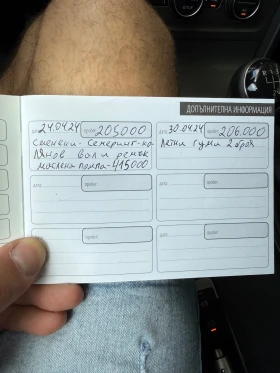 ДОПЪЛНИТЕЛНА ИНФОРМАЦИЯ
дата 24.04.24 пробег 205000
сменени - семеринг - ко-
лянов вал и ремък
маслена помпа - 415000
дата 30.04.24 пробег 206.000
Летни гуми 2 броя
дата пробег
дата пробег
дата пробег
дата пробег